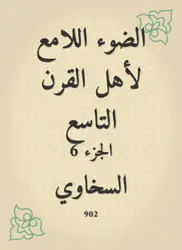 الضوء اللامع
لأهل القرن
التاسع
الجزء 6
السخاوي
902